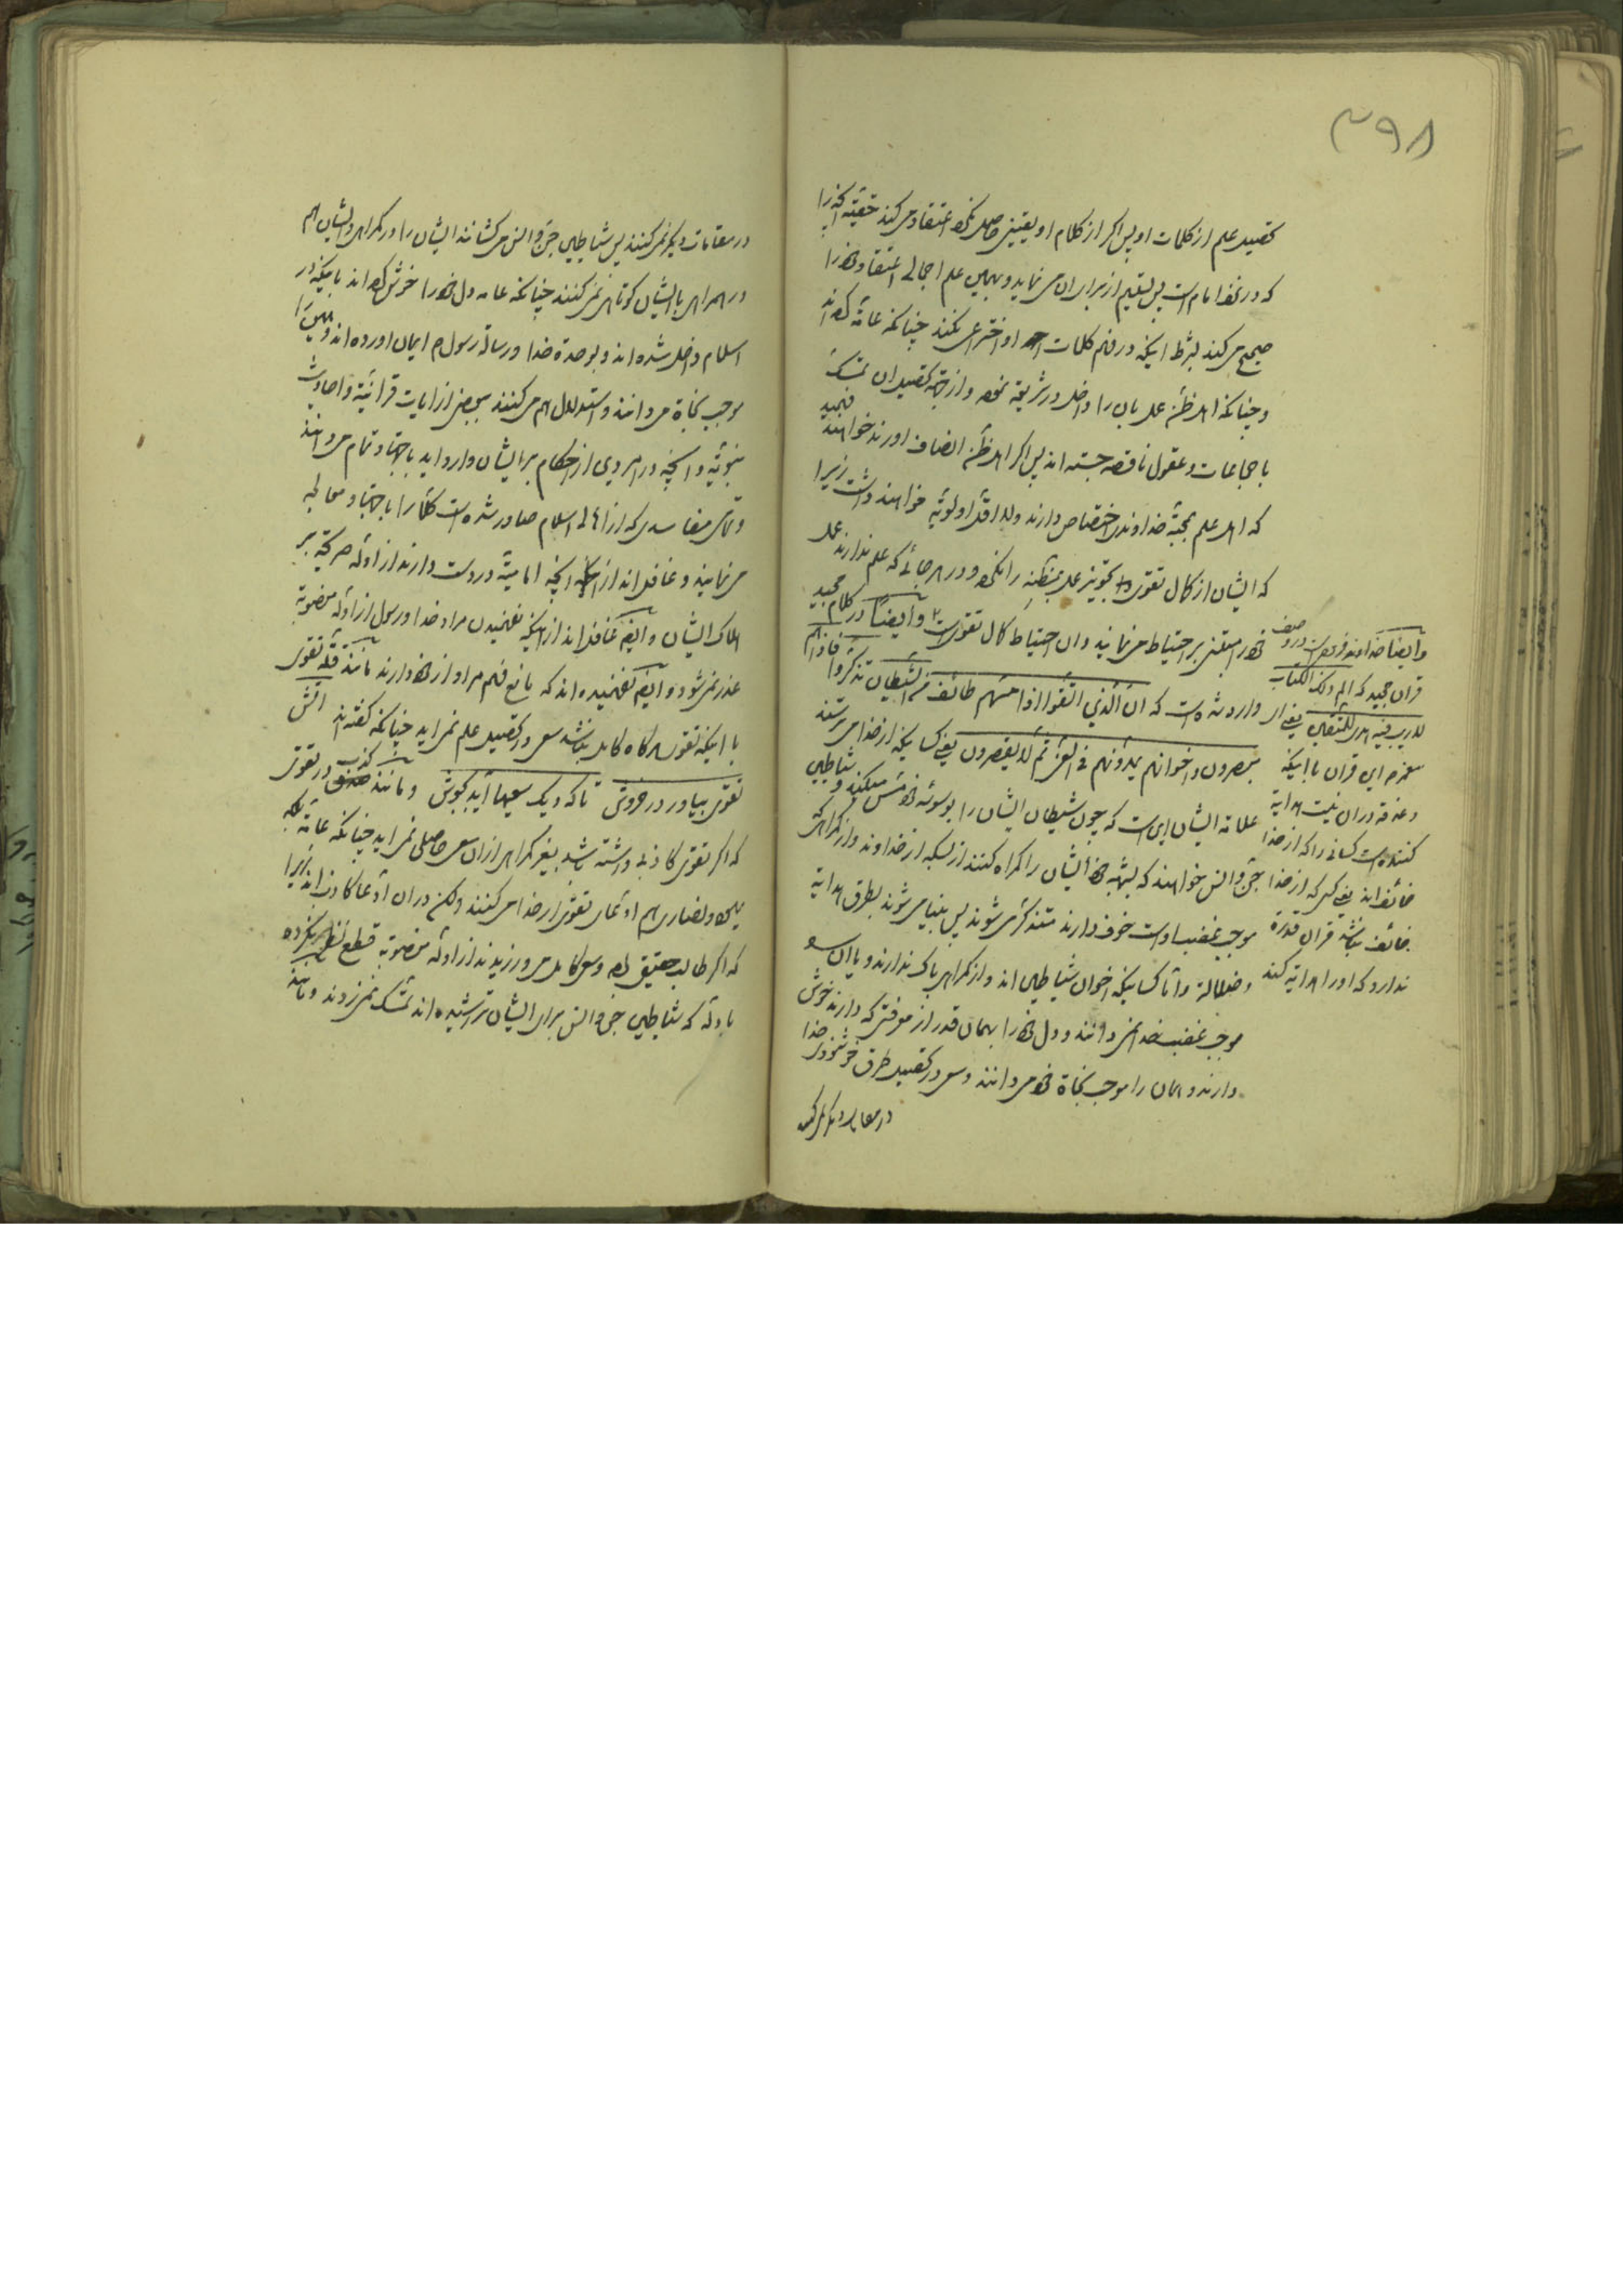 ۳۹۸
تحصیل علم از کلمات او پس اگر از کلام او یقینی حاصل نکرد اعتقاد می کند حقیة آنچه را
که در نزد امام است پس تسلیم از برای ان می نماید و بهمین علم اجمالی اعتقاد خود را
صحیح می کند بشرط اینکه در فهم کلمات او اختراعی نکند چنانکه عامه کرده اند
و چنانکه اهل ظن عمل بان را داخل در شریعة نموده و از جهة تحصیل ان تمسک
باجماعات و عقول ناقصه جسته اند پس اگر اهل ظن انصاف اورند خواهند فهمید
که اهل علم بحجة خداوندی اختصاص دارند و لا اقل اولویة خواهند داشت زیرا
که ایشان از کمال تقوی خود تجویز عمل بمظنه را نکرده و در هر جائی که علم ندارند عمل
خود را مبتنی بر احتیاط می نمایند و ان احتیاط کمال تقوی است و ایضا در کلام مجید
وارد شده است که ان الذین اتقوا اذا مسهم طائف من الشیطان تذکروا فاذا هم
مبصرون و اخوانهم یمدونهم فی الغی ثم لا یقصرون یعنی کسانیکه از خدا می ترسند
علامة ایشان این است که چون شیطان ایشان را بوسوسه خود مس میکند و شیاطین
جن و انس خواهند که بشبهه خود ایشان را گمراه کنند از بسکه از خداوند و از گمراهی که
موجب غضب اوست خوف دارند متذکر می شوند پس بینا می شوند بطرق هدایة
و ضلالة و اما کسانیکه اخوان شیاطین اند و از گمراهی باک ندارند و یا ان را
موجب غضب خدا نمی دانند و دل خود را بهمان قدر از معرفتی که دارند خوش
دارند و همان را موجب نجاة خود می دانند و سعی در تحصیل طرق خوشنودی خدا
در مقامات دیگر نمی کنند
و ایضا خداوند فرموده است در وصف
قران مجید که الم ذلک الکتاب
لا ریب فیه هدی للمتقین یعنی ای
محمد این قران با اینکه
دغدغه در ان نیست هدایة
کننده است کسانی را که از خدا
خائف اند یعنی کسی که از خدا
خائف نباشد قران قدرة
ندارد که او را هدایة کند
در مقامات دیگر نمی کنند پس شیاطین جن و انس می کشانند ایشان را در گمراهی و ایشان هم
در همراهی با ایشان کوتاهی نمی کنند چنانکه عامه دل خود را خوش کرده اند باینکه در
اسلام داخل شده اند و بوحدة خدا و رسالة رسول ص ایمان اورده اند و همین را
موجب نجاة می دانند و استدلال هم می کنند ببعضی از ایات قرانیة و احادیث
نبویة و انچه در هر موردی از احکام بر ایشان وارد اید باجتهاد تمام می دانند
و تمام مفاسدی که از اهالی اسلام صادر شده است کلا را باجتهاد معالجه
می نمایند و غافل اند از انچه امامیة در دست دارند از ادله صریحة بر
هلاک ایشان و ایضا غافل اند از اینکه نفهمیدن مراد خدا و رسول از ادله منصوبة
عذر نمی شود و ایضا نفهمیده اند که مانع فهم مراد از خود دارند مانند قلة تقوی
با اینکه تقوی هر گاه کامل نباشد سعی در تحصیل علم نمی اید چنانکه گفته اند اتش
تقوی بیاور در خروش تا که دیک سعیها آید بجوش و مانند کذب در تقوی
که اگر تقوی کاذبی داشته باشد بغیر گمراهی از ان سعی حاصلی نمی اید چنانکه عامة بلکه
یهود و نصاری هم ادعای تقوی از خدا می کنند ولکن در ان ادعا کاذب اند زیرا
که اگر طالب حقیقی بوده و سعی کامل می ورزیدند از ادله منصوبة قطع نظر نکرده
بادله که شیاطین جن و انس برای ایشان تراشیده اند تمسک نمی زدند و مانند